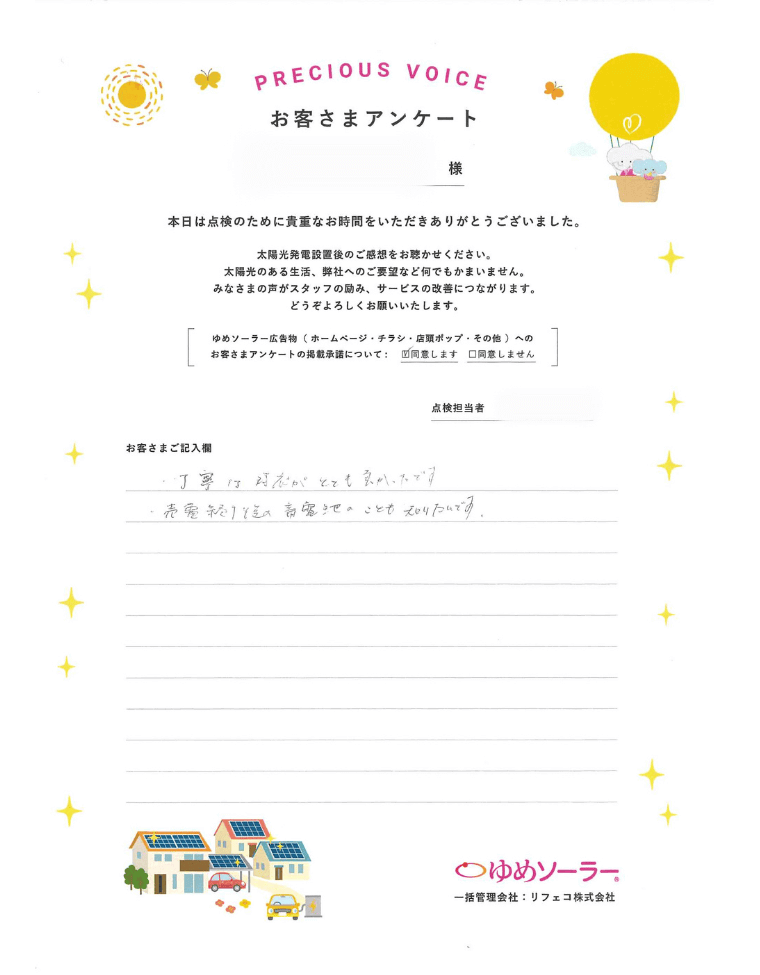 PRECIOUS VOICE
お客さまアンケート
様
本日は点検のために貴重なお時間をいただきありがとうございました。
太陽光発電設置後のご感想をお聴かせください。
太陽光のある生活、弊社へのご要望など何でもかまいません。
みなさまの声がスタッフの励み、サービスの改善につながります。
どうぞよろしくお願いいたします。
ゆめソーラー広告物(ホームページ・チラシ・店頭ポップ・その他)への
お客さまアンケートの掲載承諾について: ☑同意します □同意しません
点検担当者
お客さまご記入欄
・丁寧な対応がとても良かったです
・売電終了後の蓄電池のことも知りたいです。
ゆめソーラー®
一括管理会社:リフェコ株式会社